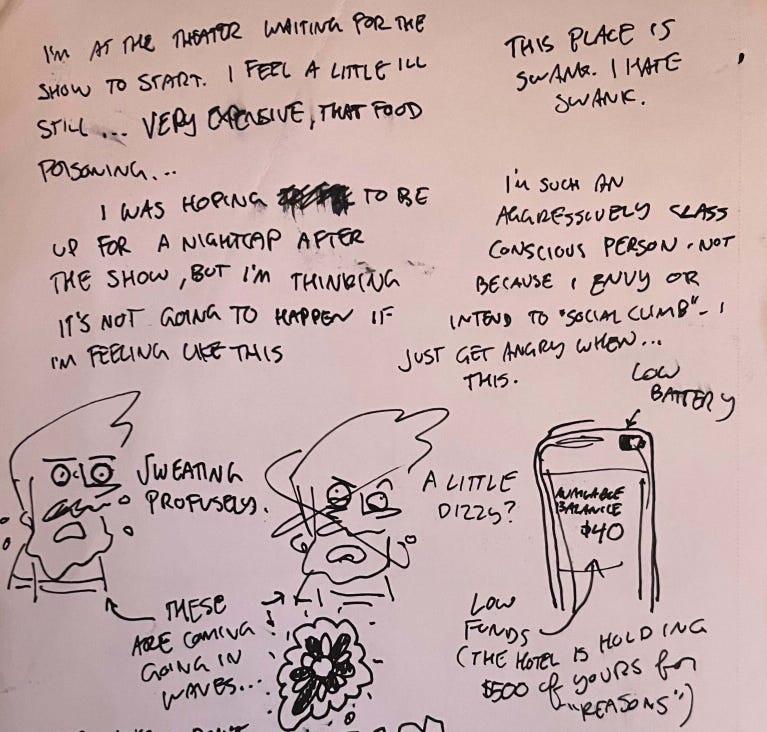 I'M AT THE THEATER WAITING FOR THE
SHOW TO START. I FEEL A LITTLE ILL
STILL... VERY EXPENSIVE, THAT FOOD
POISONING...
I WAS HOPING TO BE
UP FOR A NIGHTCAP AFTER
THE SHOW, BUT I'M THINKING
IT'S NOT GOING TO HAPPEN IF
I'M FEELING LIKE THIS
THIS PLACE IS
SWANK. I HATE
SWANK.
I'M SUCH AN
AGGRESSIVELY CLASS
CONSCIOUS PERSON. NOT
BECAUSE I ENVY OR
INTEND TO "SOCIAL CLIMB" - I
JUST GET ANGRY WHEN...
THIS.
SWEATING
PROFUSELY.
A LITTLE
DIZZY?
LOW
BATTERY
AVAILABLE
BALANCE
$40
THESE
ARE COMING
GOING IN
WAVES...
LOW
FUNDS
(THE HOTEL IS HOLDING
$500 of YOURS for
"REASONS")